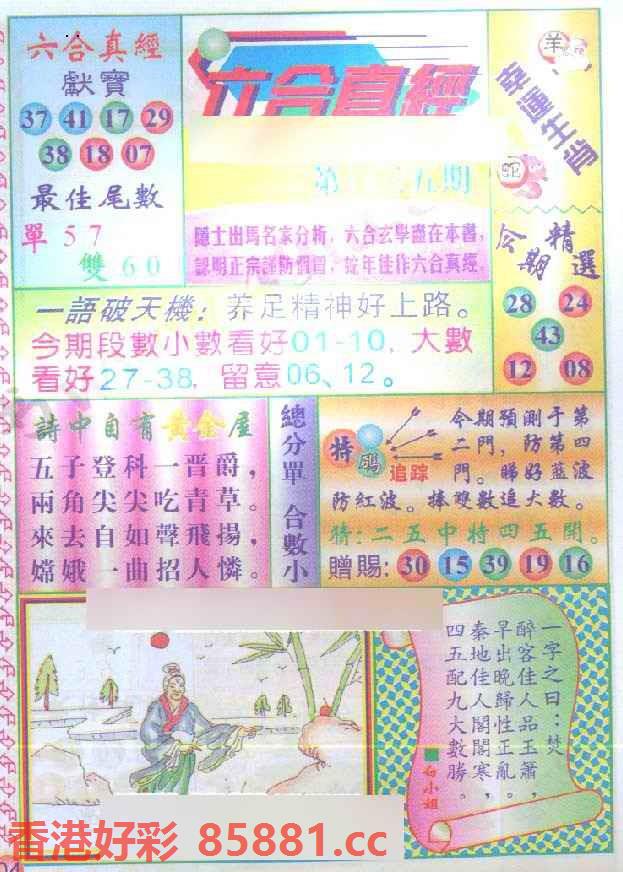 六合真經
獻寶
37 41 17 29
38 18 07
最佳尾數
單57
雙60
六合真經
期
隱士出馬名家分析，六合玄學盡在本書，
認明正宗謹防假冒，蛇年佳作六合真經，
羊
幸運生肖
蛇
今期精選
28 24
43
12 08
一語破天機：养足精神好上路。
今期段數小數看好01-10，大數
看好27-38，留意06、12。
詩中自有黃金屋
五子登科一晋爵，
兩角尖尖吃青草。
來去自如聲飛揚，
嫦娥一曲招人憐。
總分單 合數小
特碼追踪
今期預測于第
二門，防第四
門。睇好藍波
防紅波。捧雙數追大數。
特：二五中特四五開。
贈賜：30 15 39 19 16
一字之曰：焚
醉客佳人品玉簫，
早出晚歸性正亂。
秦地佳人閣閣寒，
四五配九大數勝。
白小姐
香港好彩 85881.cc
04